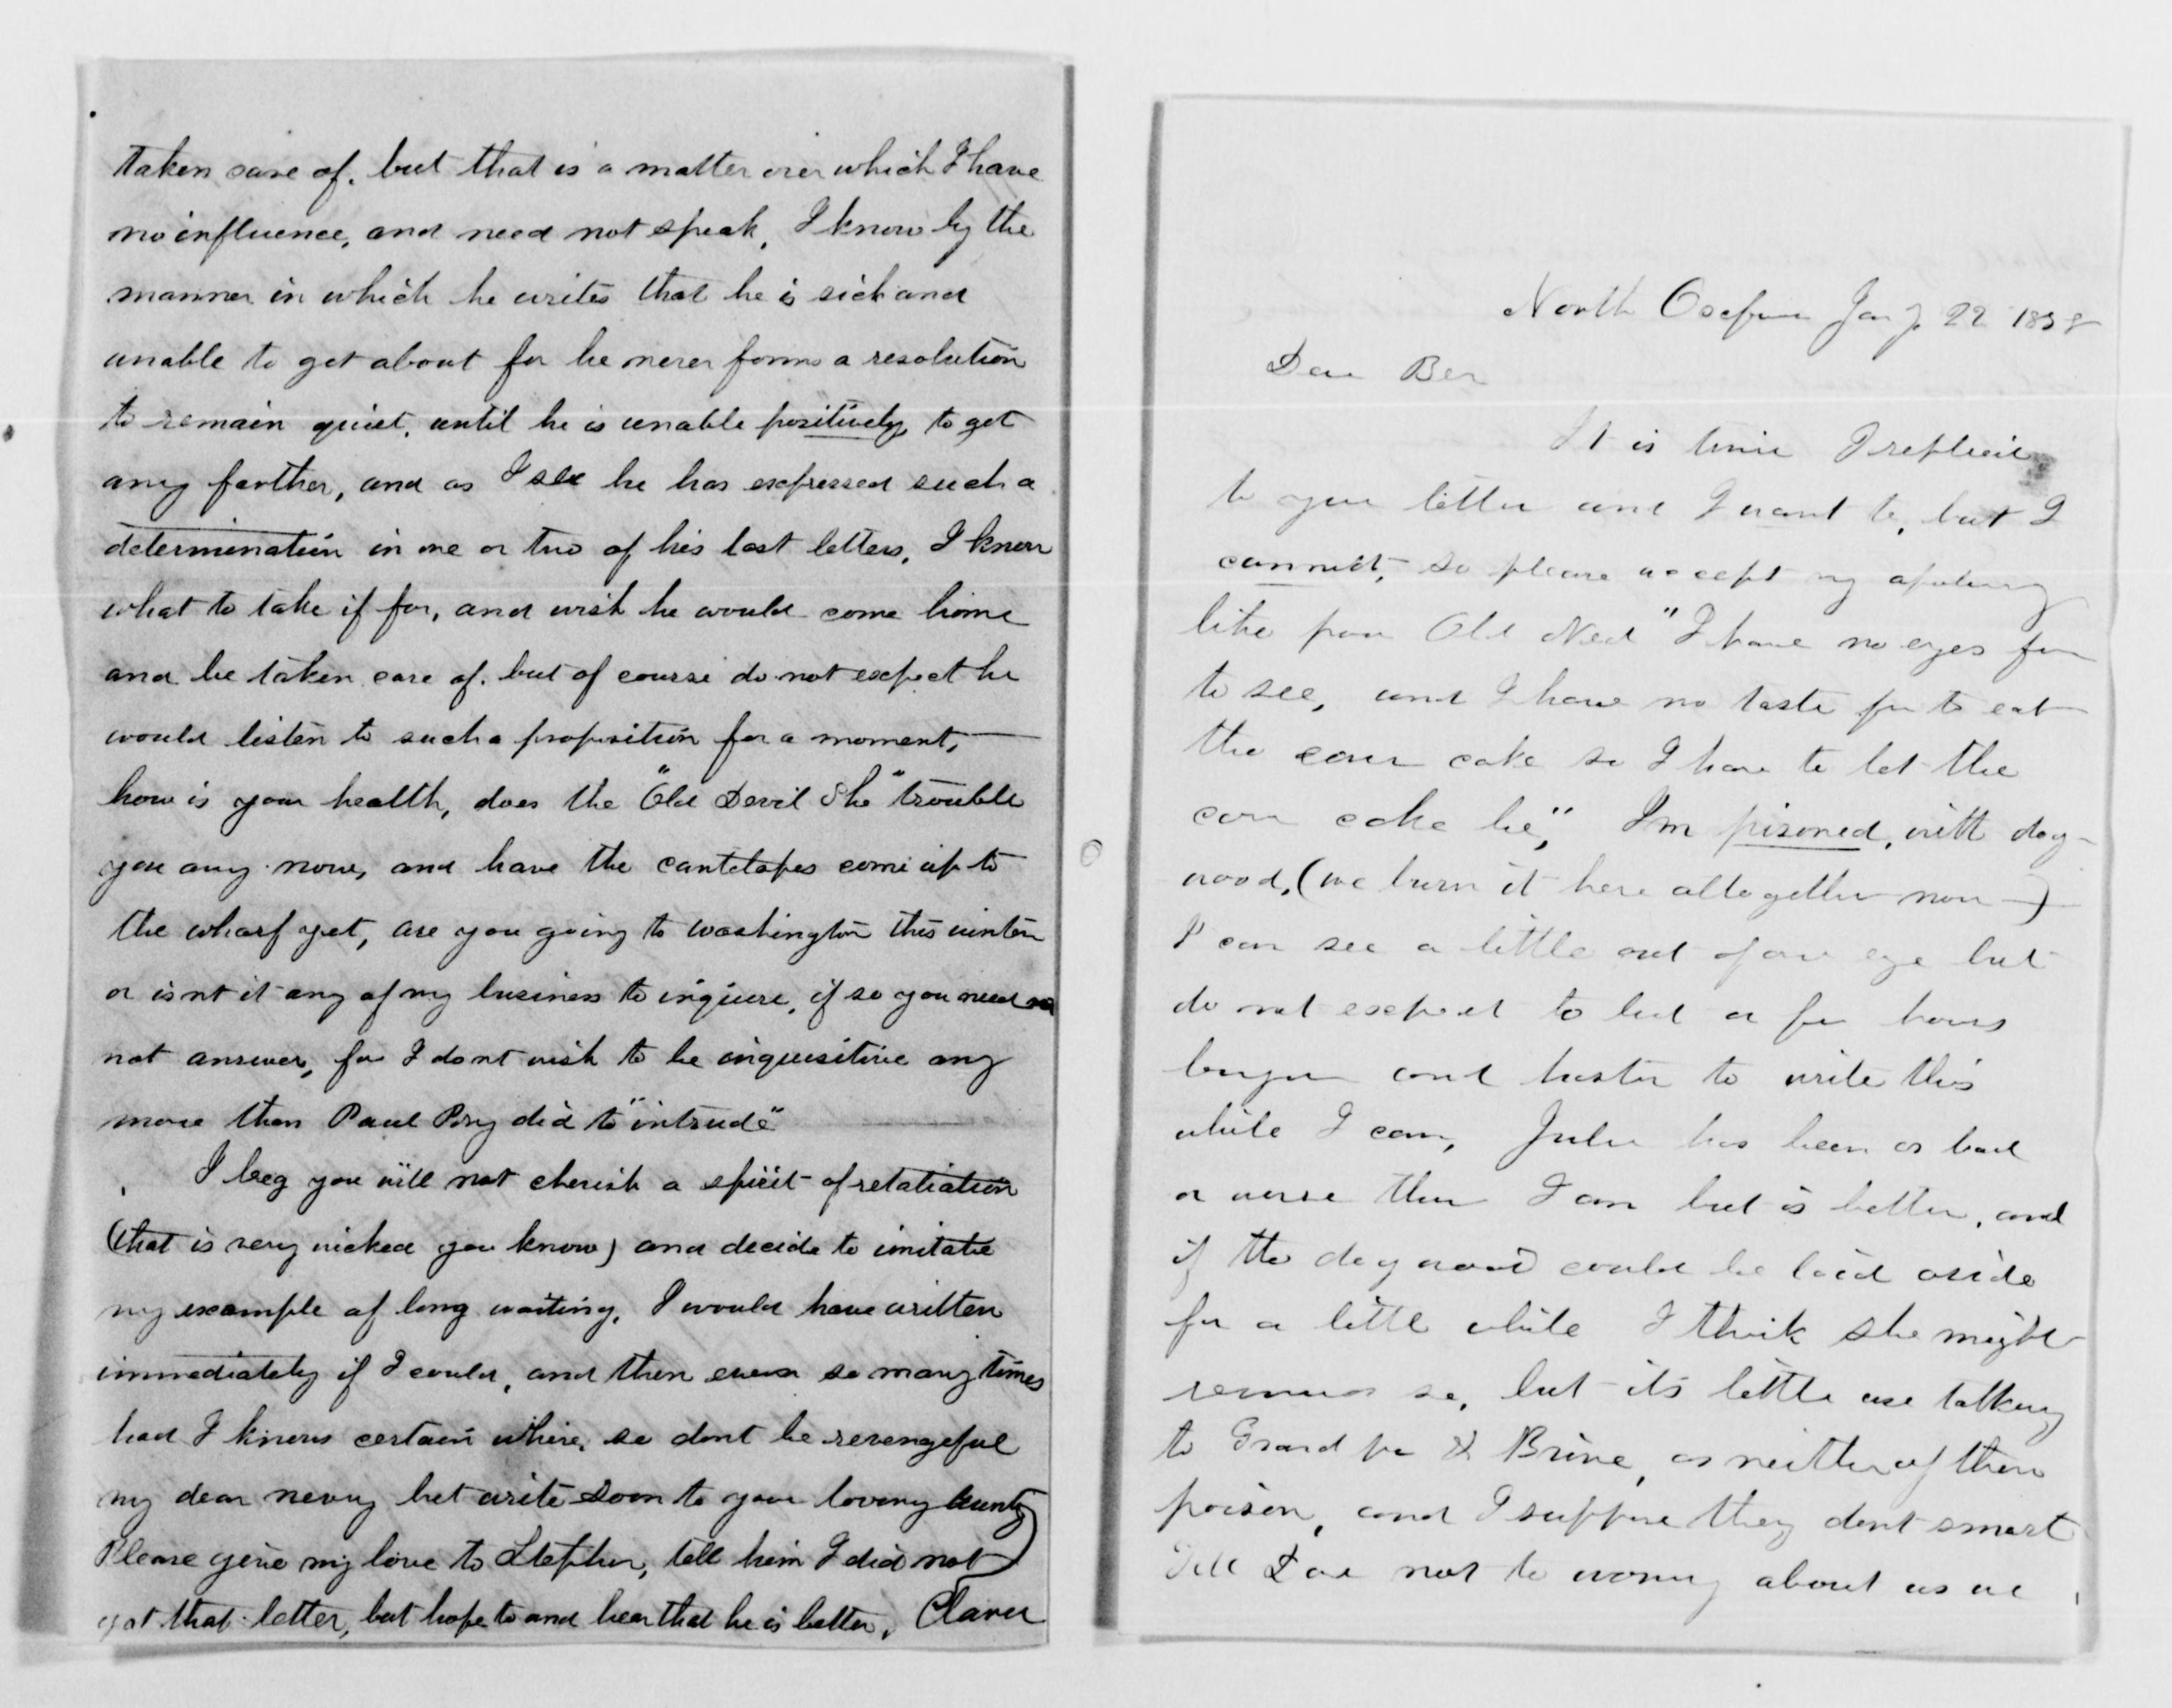 taken care of. but that is a matter over which I have
no influence, and need not speak, I know by the
manner in which he writes that he is sick and
unable to get about for he never forms a resolution
to remain quiet, until he is unable positively to get
any farther, and as I see he has expressed such a
determination in one or two of his last letters, I know
what to take if for, and wish he would come home
and be taken care of. but of course do not expect he
would listen to such a proposition for a moment,
how is your health, does the "Old Devil She" trouble
you any now, and have the cantelopes come up to
the wharf yet, are you going to washington this winter
or isnt it any of my business to inquire, if so you need
not answer, for I dont wish to be inquisitive any
more than Paul Pry did to "intrude"
I beg you will not cherish a spirit of retaliation
(that is very wicked you know) and decide to imitate
my example of long waiting, I would have written
immediately if I could, and then ever so many times
had I known certain where, so dont be revengeful
my dear nevvy but write soon to your loving Aunty
Please give my love to Stephen, tell him I did not
get that letter, but hope to and hear that he is better, Clara
North Oxford Jany 22 1858
Dear Ber
It is time I replied
to your letter and I want to, but I
cannot, so please accept my apology
like poor Old Ned "I have no eyes for
to see, and I have no taste for to eat
the corn cake so I have to let the
corn cake be," I'm pisoned, with dog-
wood, (we burn it here altogether now)
I can see a little out of one eye but
do not expect to but a few hours
longer and hasten to write this
while I can, Julie has been as bad
or worse than I am but is better, and
if the dogwood could be laid aside
for a little while I think she might
remain so, but its little use talking
to Grand pa & Brine, as neither of them
poison, and I suppose they dont smart
Tell Dave not to worry about us we